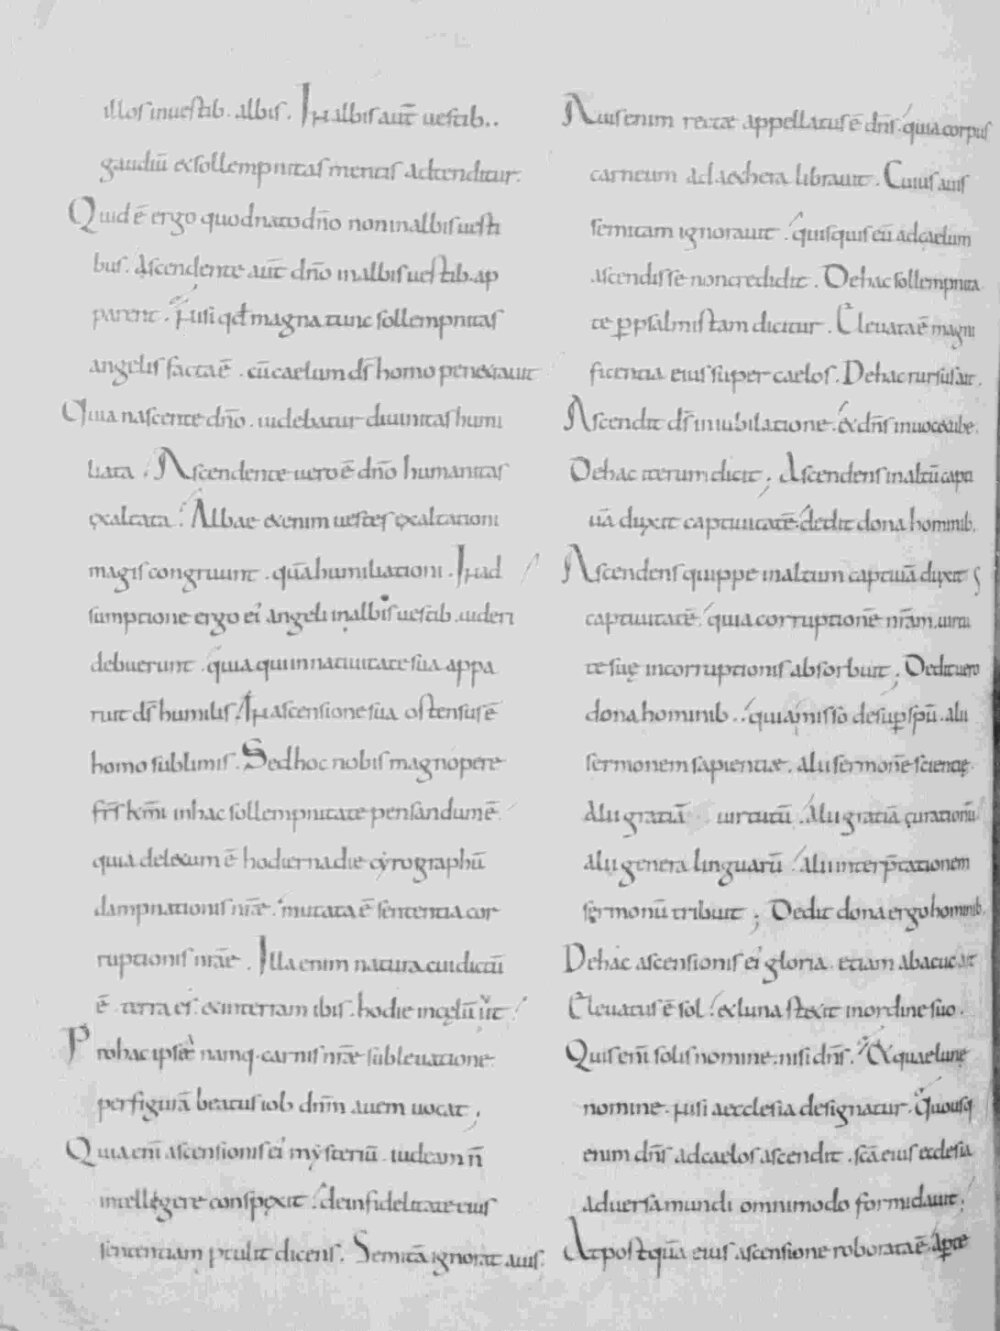 illos in uestib. albis. In albis aut̄ uestib..
gaudiū et sollempnitas mentis adtenditur.
Quid ē ergo quod nato dn̄o non in albis uesti
bus. Ascendente aut̄ dn̄o in albis uestib. ap
parent. Nisi qđ magna tunc sollempnitas
angelis facta ē. cū caelum dš homo penetrauit
Quia nascente dn̄o. uidebatur diuinitas humi
liata. Ascendente uero ē dn̄o humanitas
exaltata. Albae etenim uestes exaltationi
magis congruunt. quā humiliationi. In ad
sumptione ergo ei' angeli in albis uestib. uideri
debuerunt. quia qui in natiuitate sua appa
ruit dš humilis. In ascensione sua ostensus ē
homo sublimis. Sed hoc nobis magnopere
frš km̄i in hac sollempnitate pensandum ē.
quia deletum ē hodierna die cyrographū
dampnationis nrāe. mutata ē sententia cor
ruptionis nrāe. Illa enim natura cui dictū
ē terra es. et in terram ibis. hodie in cęlū iuit
Pro hac ipsa namq. carnis nrāe subleuatione
per figurā beatus iob dnm̄ auem uocat;
Quia eni ascensionis ei' mysteriū. iudeam n̄
intellegere conspexit. de infidelitate eius
sententiam ꝓtulit dicens. Semitā ignorat auis.
Auis enim rectae appellatus ē dns̄. quia corpus
carneum ad aethera librauit. Cuius auis
semitam ignorauit. quisquis eū ad caelum
ascendisse non credidit. De hac sollempnita
te ꝑ psalmistam dicitur. Eleuata ē magni
ficentia eius super caelos. De hac rursus ait.
Ascendit dš in iubilatione. et dns̄ in uoce tube.
De hac iterum dicit; Ascendens in altū capti
uā duxit captiuitatē. dedit dona hominib.
Ascendens quippe in altum captiuā duxit
captiuitatē. quia corruptionē nrām. uirtu
te suę incorruptionis absorbuit; Dedit uero
dona hominib.. quia misso desuꝑ spū. alii
sermonem sapientiae. alii sermonē scientię.
Alii gratiā uirtutū. Alii gratiā curationū
alii genera linguarū. Alii interp̄tationem
sermonū tribuit; Dedit dona ergo hominib.
De hac ascensionis ei' gloria. etiam abacuc ait
Eleuatus ē sol. et luna stetit in ordine suo.
Quis eni solis nomine. nisi dns̄. Et quae lunę
nomine. nisi aecclesia designatur. Quousq
enim dns̄ ad caelos ascendit. scā eius ecclesia
aduersa mundi omnimodo formidauit.
At postquā eius ascensione roborata ē. aꝑte